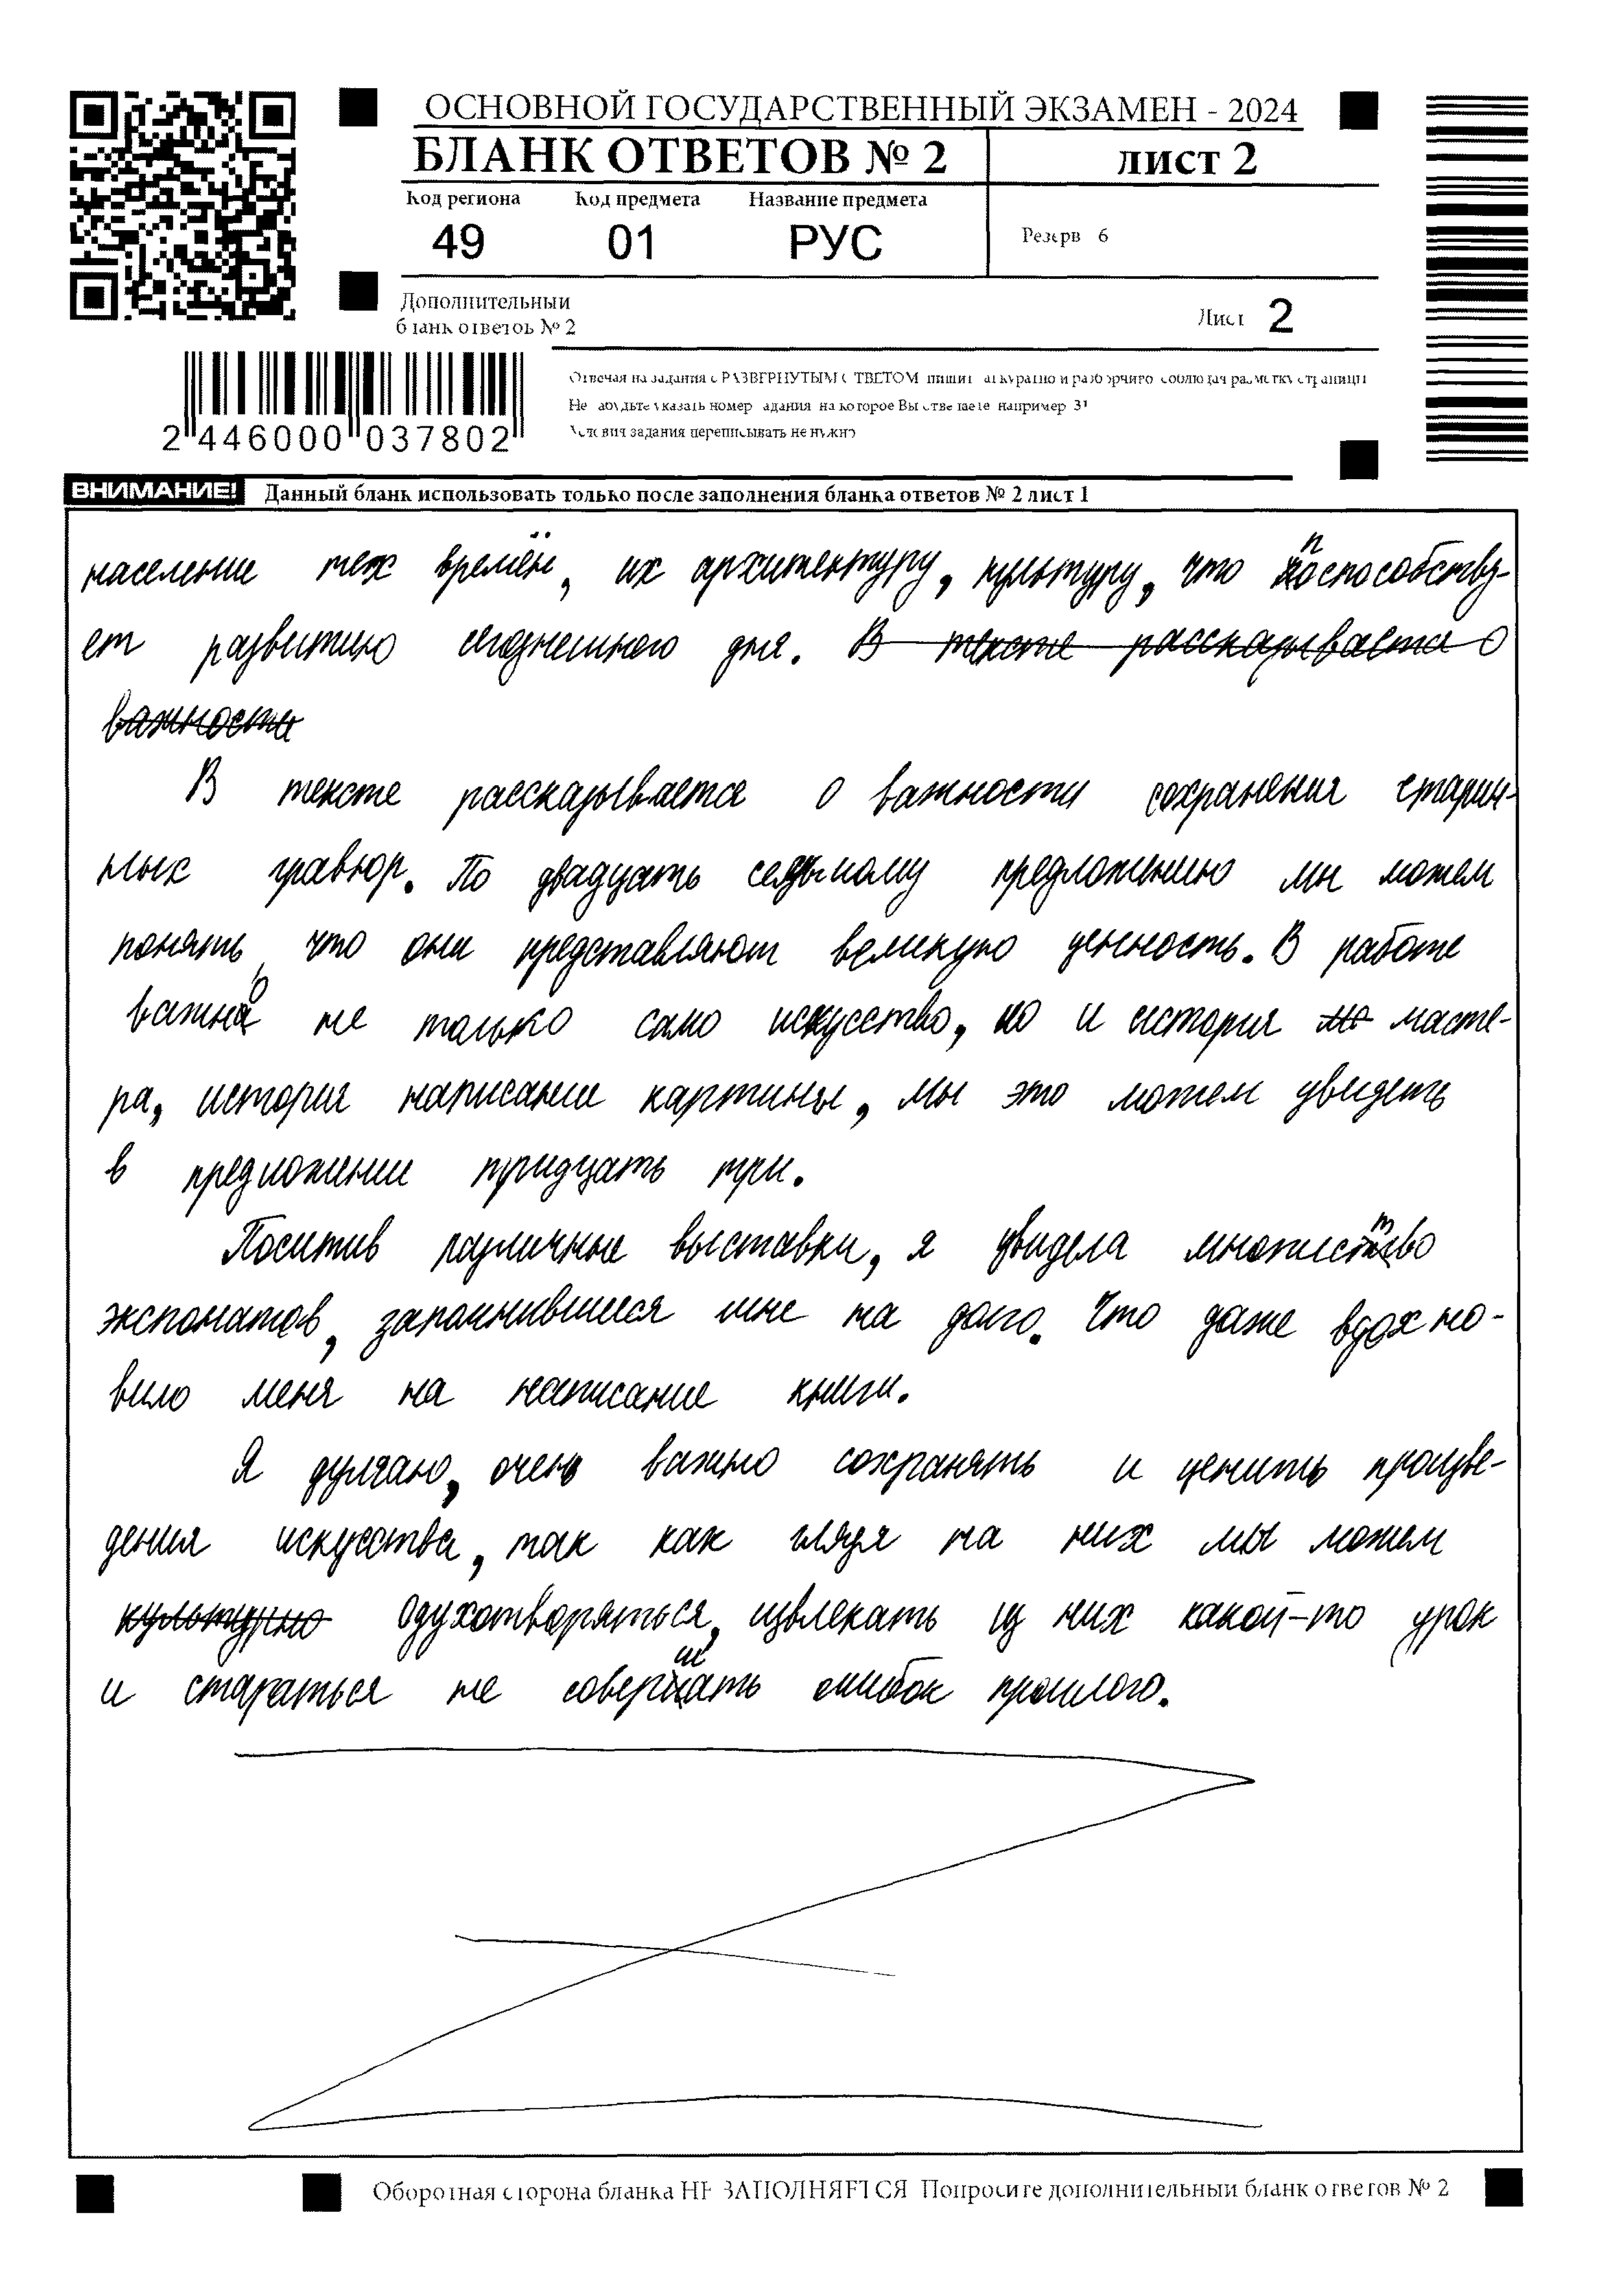 ОСНОВНОЙ ГОСУДАРСТВЕННЫЙ ЭКЗАМЕН - 2024
БЛАНК ОТВЕТОВ № 2
ЛИСТ 2
Код региона Код предмета Название предмета
49 01 РУС
Резерв 6
Дополнительный
бланк ответов № 2
Лист 2
Отвечая на задания с РАЗВЕРНУТЫМ ОТВЕТОМ пишите аккуратно и разборчиво соблюдая разметку страницы
Не забудьте указать номер задания на которое Вы отвечаете например 31
Условия задания переписывать не нужно
2 446000 037802
ВНИМАНИЕ! Данный бланк использовать только после заполнения бланка ответов № 2 лист 1
население тех времён, их архитектуру, культуру, что поспособству-
ет развитию сегоднешнего дня. В тексте рассказывается о
важности
В тексте рассказывается о важности сохранения старин-
ных гравюр. По двадцать седьмому предложению мы можем
понять что они представляют великую ценность. В работе
важно не только само искусство, но и история мо масте-
ра, история написании картины, мы это можем увидеть
в предложении тридцать три.
Поситив различные выставки, я увидела множиство
экспонатов, запомнившиеся мне на долго. Что даже вдохно-
вило меня на написание книги.
Я думаю, очень важно сохранять и ценить произве-
дения искусства, так как глядя на них мы можем
культурно одухотворяться, извлекать из них какой-то урок
и стараться не совершать ошибок прошлого.
Оборотная сторона бланка НЕ ЗАПОЛНЯЕТСЯ Попросите дополнительный бланк ответов № 2